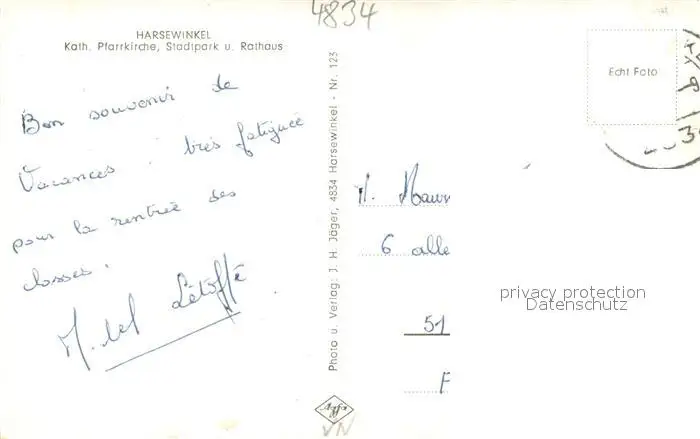 4834
HARSEWINKEL
Kath. Pfarrkirche, Stadtpark u. Rathaus
Bon souvenir de
Vacances. très fatiguée
pour la rentrée des
classes.
Létoffé
Photo u. Verlag: J. H. Jäger, 4834 Harsewinkel - Nr. 123
Agfa
VN
Echt Foto
M.
6 alle
51
F
privacy protection
Datenschutz